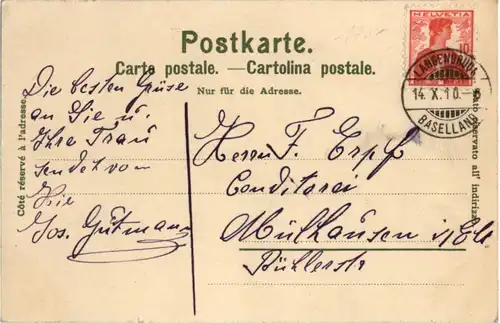 Postkarte.
Carte postale. — Cartolina postale.
Nur für die Adresse.
Côté réservé à l'adresse.
Lato riservato all' indirizzo.
HELVETIA
10
LANGENBRUCK
14. X. 10. - 6
BASELLAND
Die besten Grüse
an Sie u.
Ihre Frau
sendet von
Hie
Jos. Gutmann
Herrn F. Erpf
Conditorei
Mülhausen i/Els
Bühlerstr